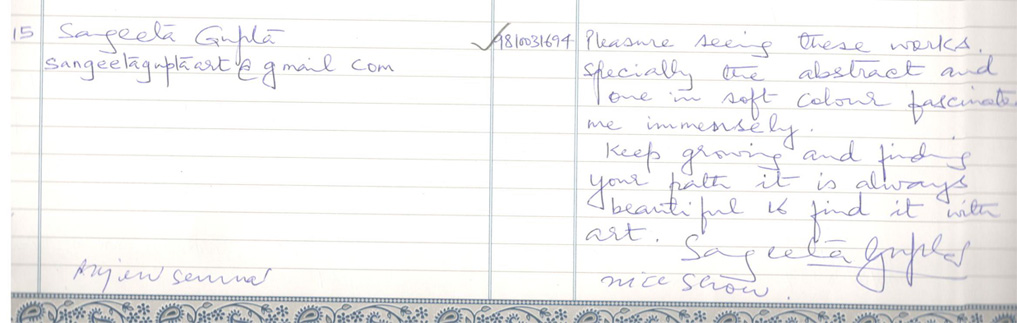 15 Sangeetā Guptā ✓9810031694 Pleasure seeing these works.
sangeetāguptāart@gmail com specially the abstract and
one in soft colour fascinate
me immensely.
Keep growing and finding
your path it is always
beautiful to find it with
art. Sangeetā Guptā
nice show.